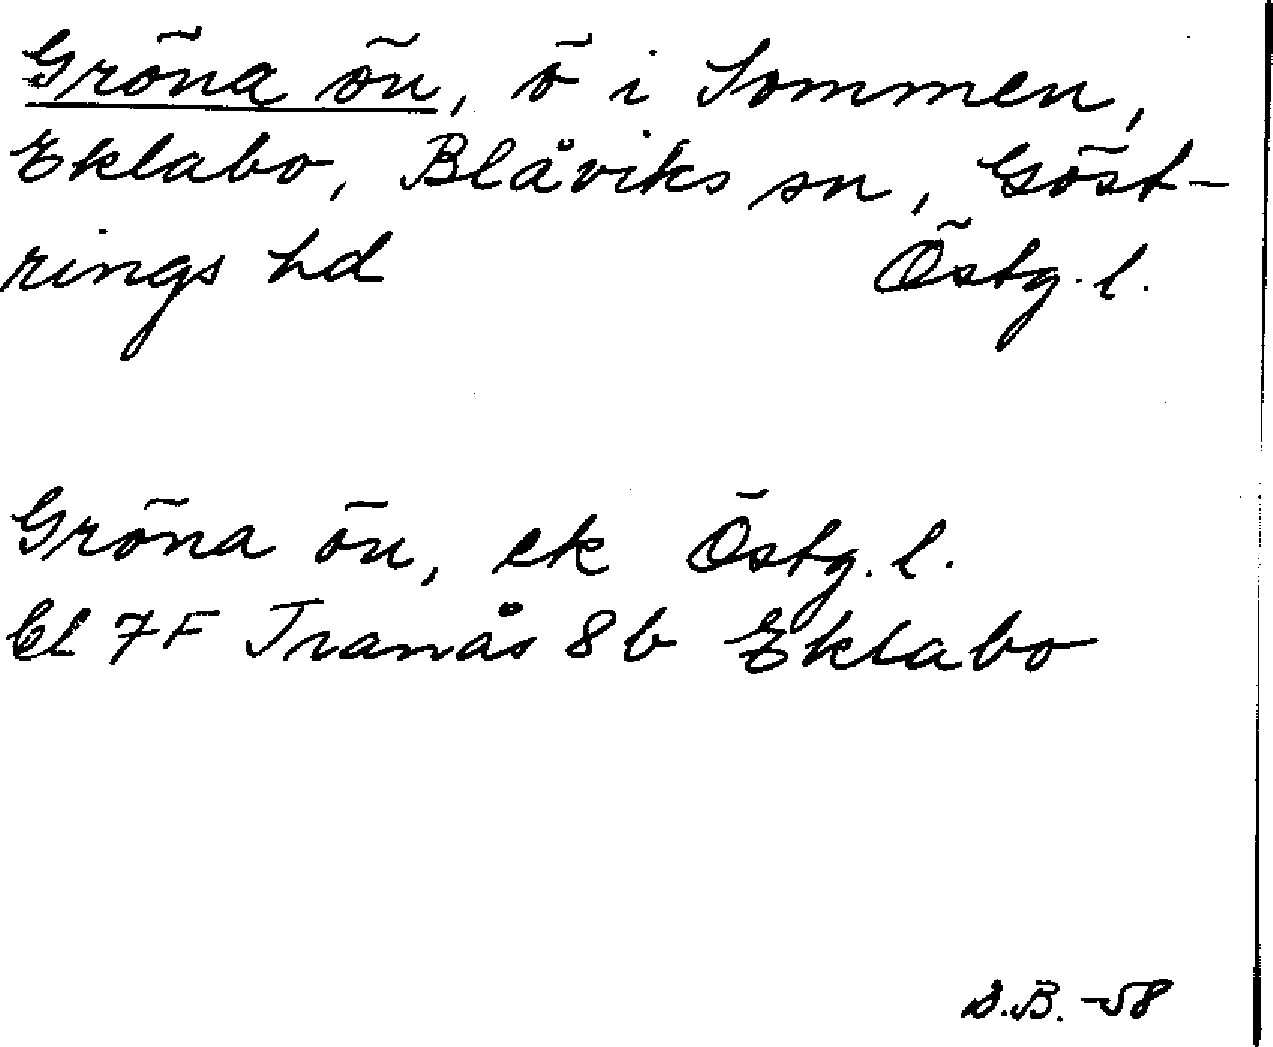 Gröna ön, ö i Sommen,
Eklabo, Blåviks sn, Göst-
rings hd Östg. l.
Gröna ön, ek Östg. l.
Bl 7F Tranås 8b Eklabo
S.B. -58